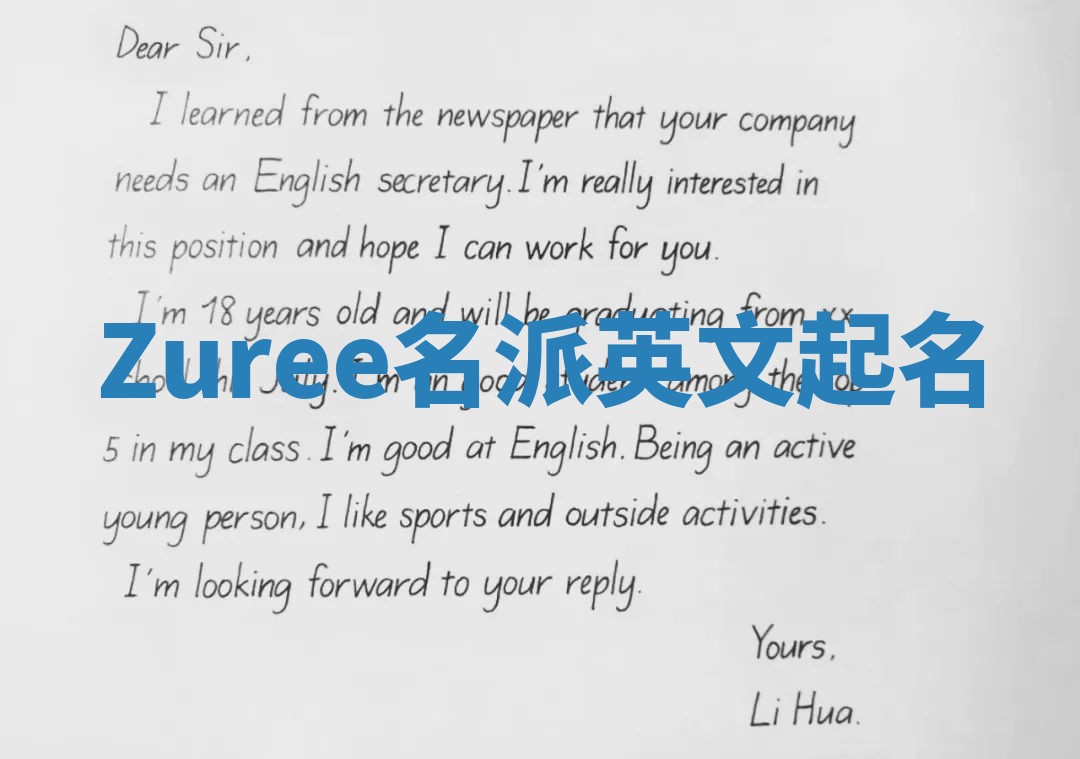 Dear Sir,
I learned from the newspaper that your company
needs an English secretary. I'm really interested in
this position and hope I can work for you.
I'm 18 years old and will be graduating from xx
Zuree名派英文起名
July. I'm an good student among the top
5 in my class. I'm good at English. Being an active
young person, I like sports and outside activities.
I'm looking forward to your reply.
Yours,
Li Hua.